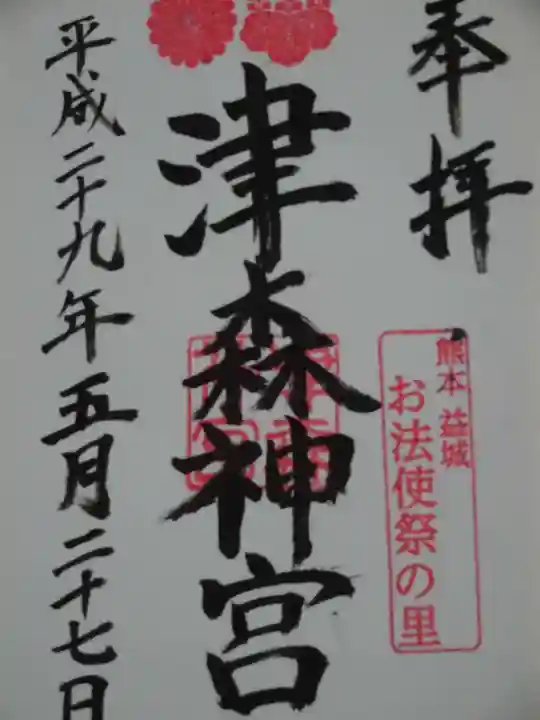 奉拝
熊本 益城
お法使祭の里
津森神宮
平成二十九年五月二十七日